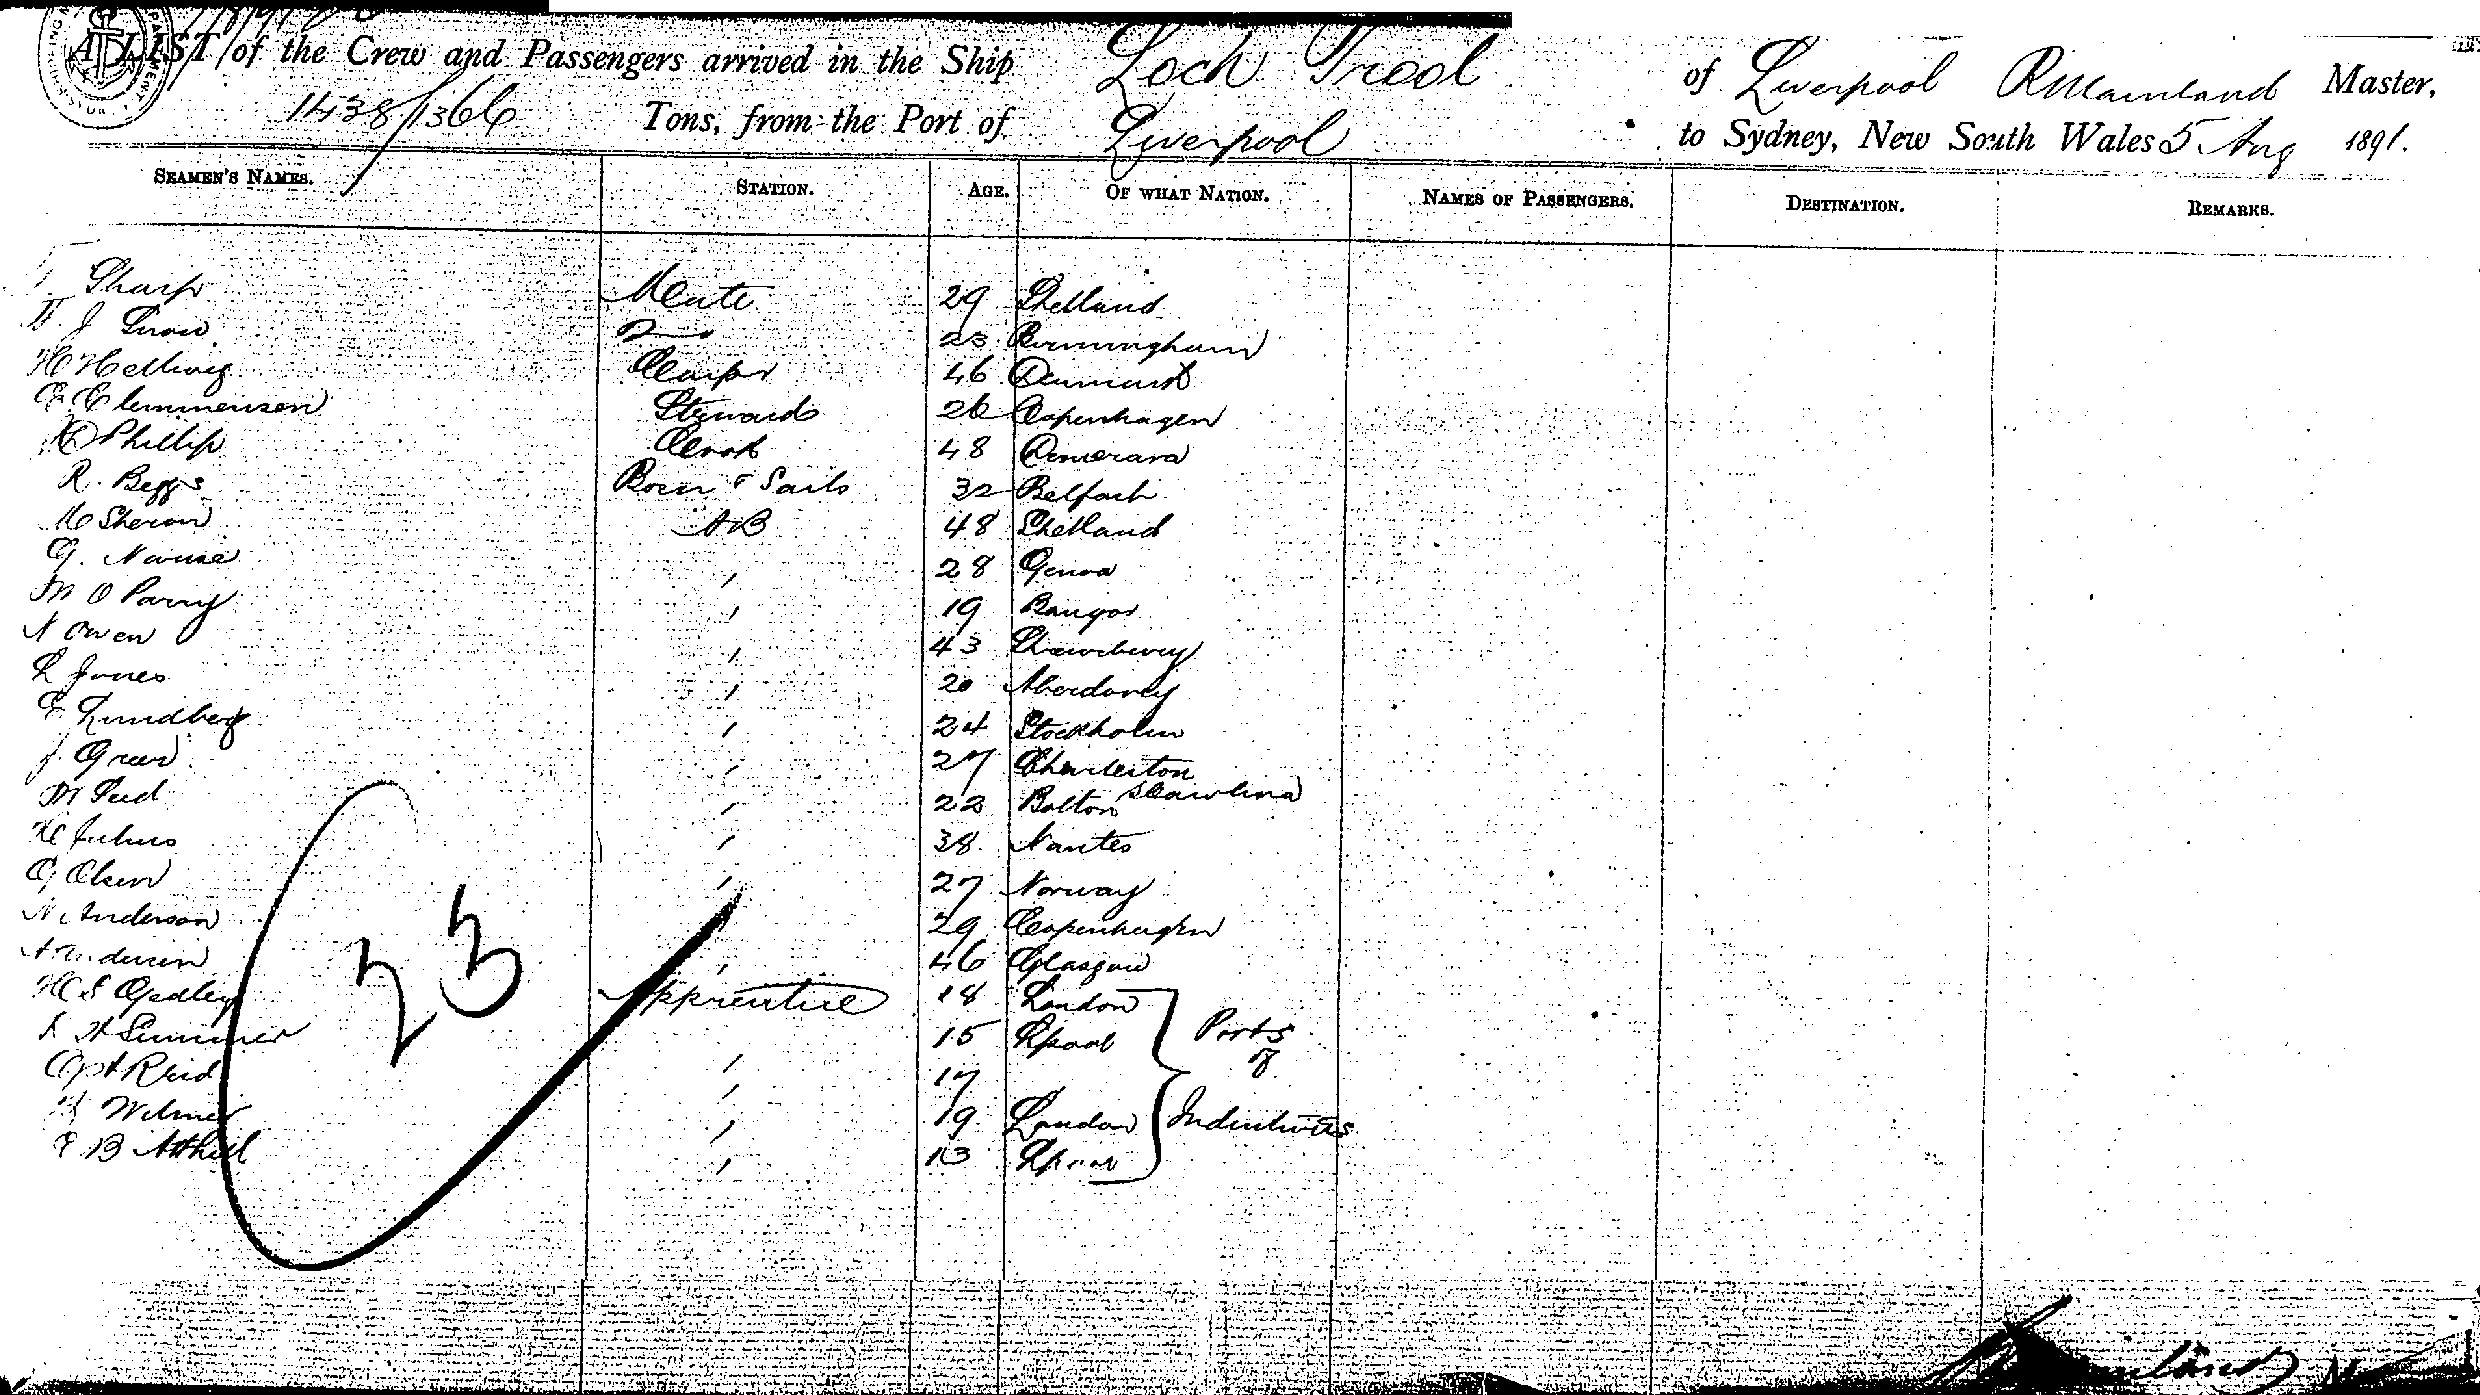 A LIST of the Crew and Passengers arrived in the Ship Loch Trool of Liverpool R Mainland Master,
1438/1366 Tons, from the Port of Liverpool to Sydney, New South Wales 5 Aug 1891.
SEAMEN'S NAMES. STATION. AGE. OF WHAT NATION. NAMES OF PASSENGERS. DESTINATION. REMARKS.
Sharp Mate 29 Shetland
J 2 23 Birmingham
H Hellwig Carpr 46 Denmark
C Clemmensen Steward 26 Copenhagen
Phillip Cook 48 Demerara
R. Beggs Bosn & Sails 32 Belfast
AB 48 Shetland
G. 28 Genoa
M O Parry " 19 Bangor
N Owen " 43 Shrewsbury
L Jones " 20 Aberdovey
E Lundberg " 24 Stockholm
J. " 27 Charleston
S Carolina
M " 22 Bolton
H Julius " 38 Nantes
G Olsen " 27 Norway
N Anderson 29 Copenhagen
" 46 Glasgow
23
H S Apprentice 18 London
15 Lpool Ports
Reid " 17 of
Wilmer " 19 London Indentures
E B " 13 Lpool